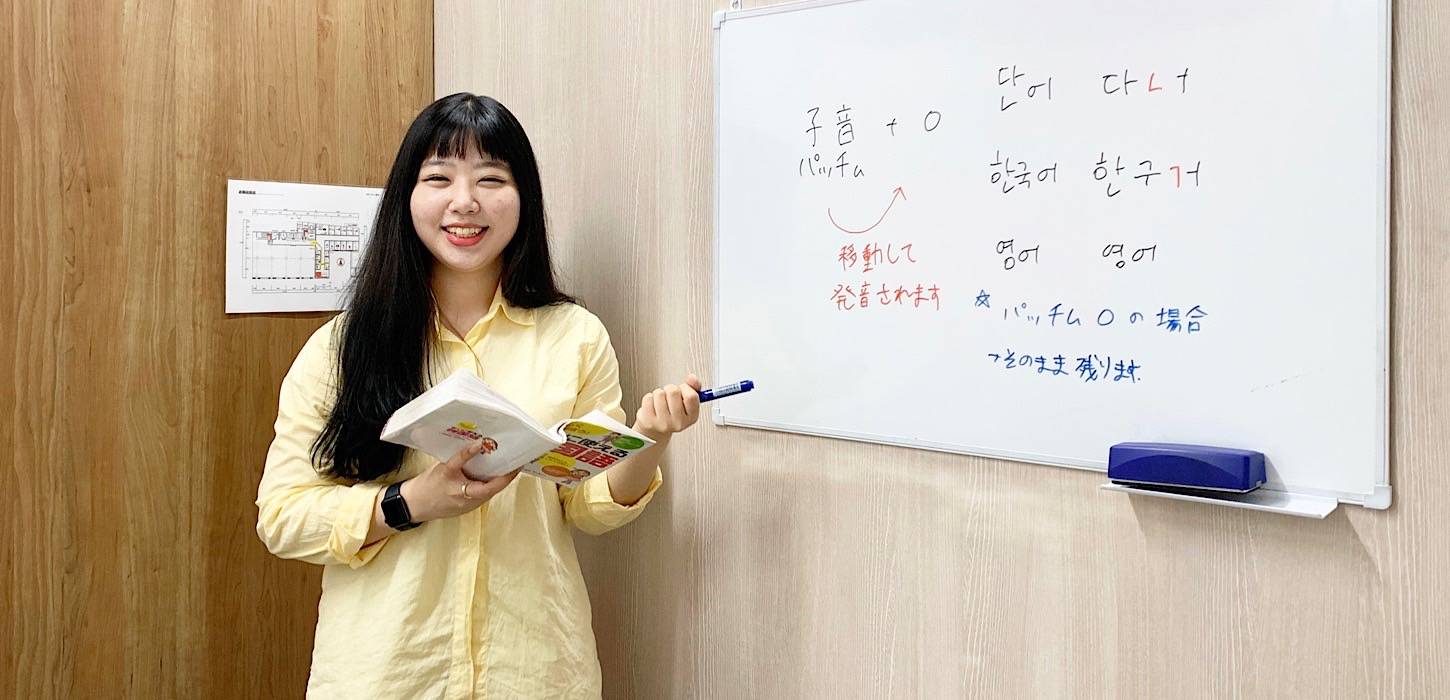 子音 + ㅇ
パッチム
移動して
発音されます
단어 다ㄴㅓ
한국어 한구ㄱㅓ
영어 영어
☆ パッチム ㅇ の 場合
→そのまま 残ります.
使える